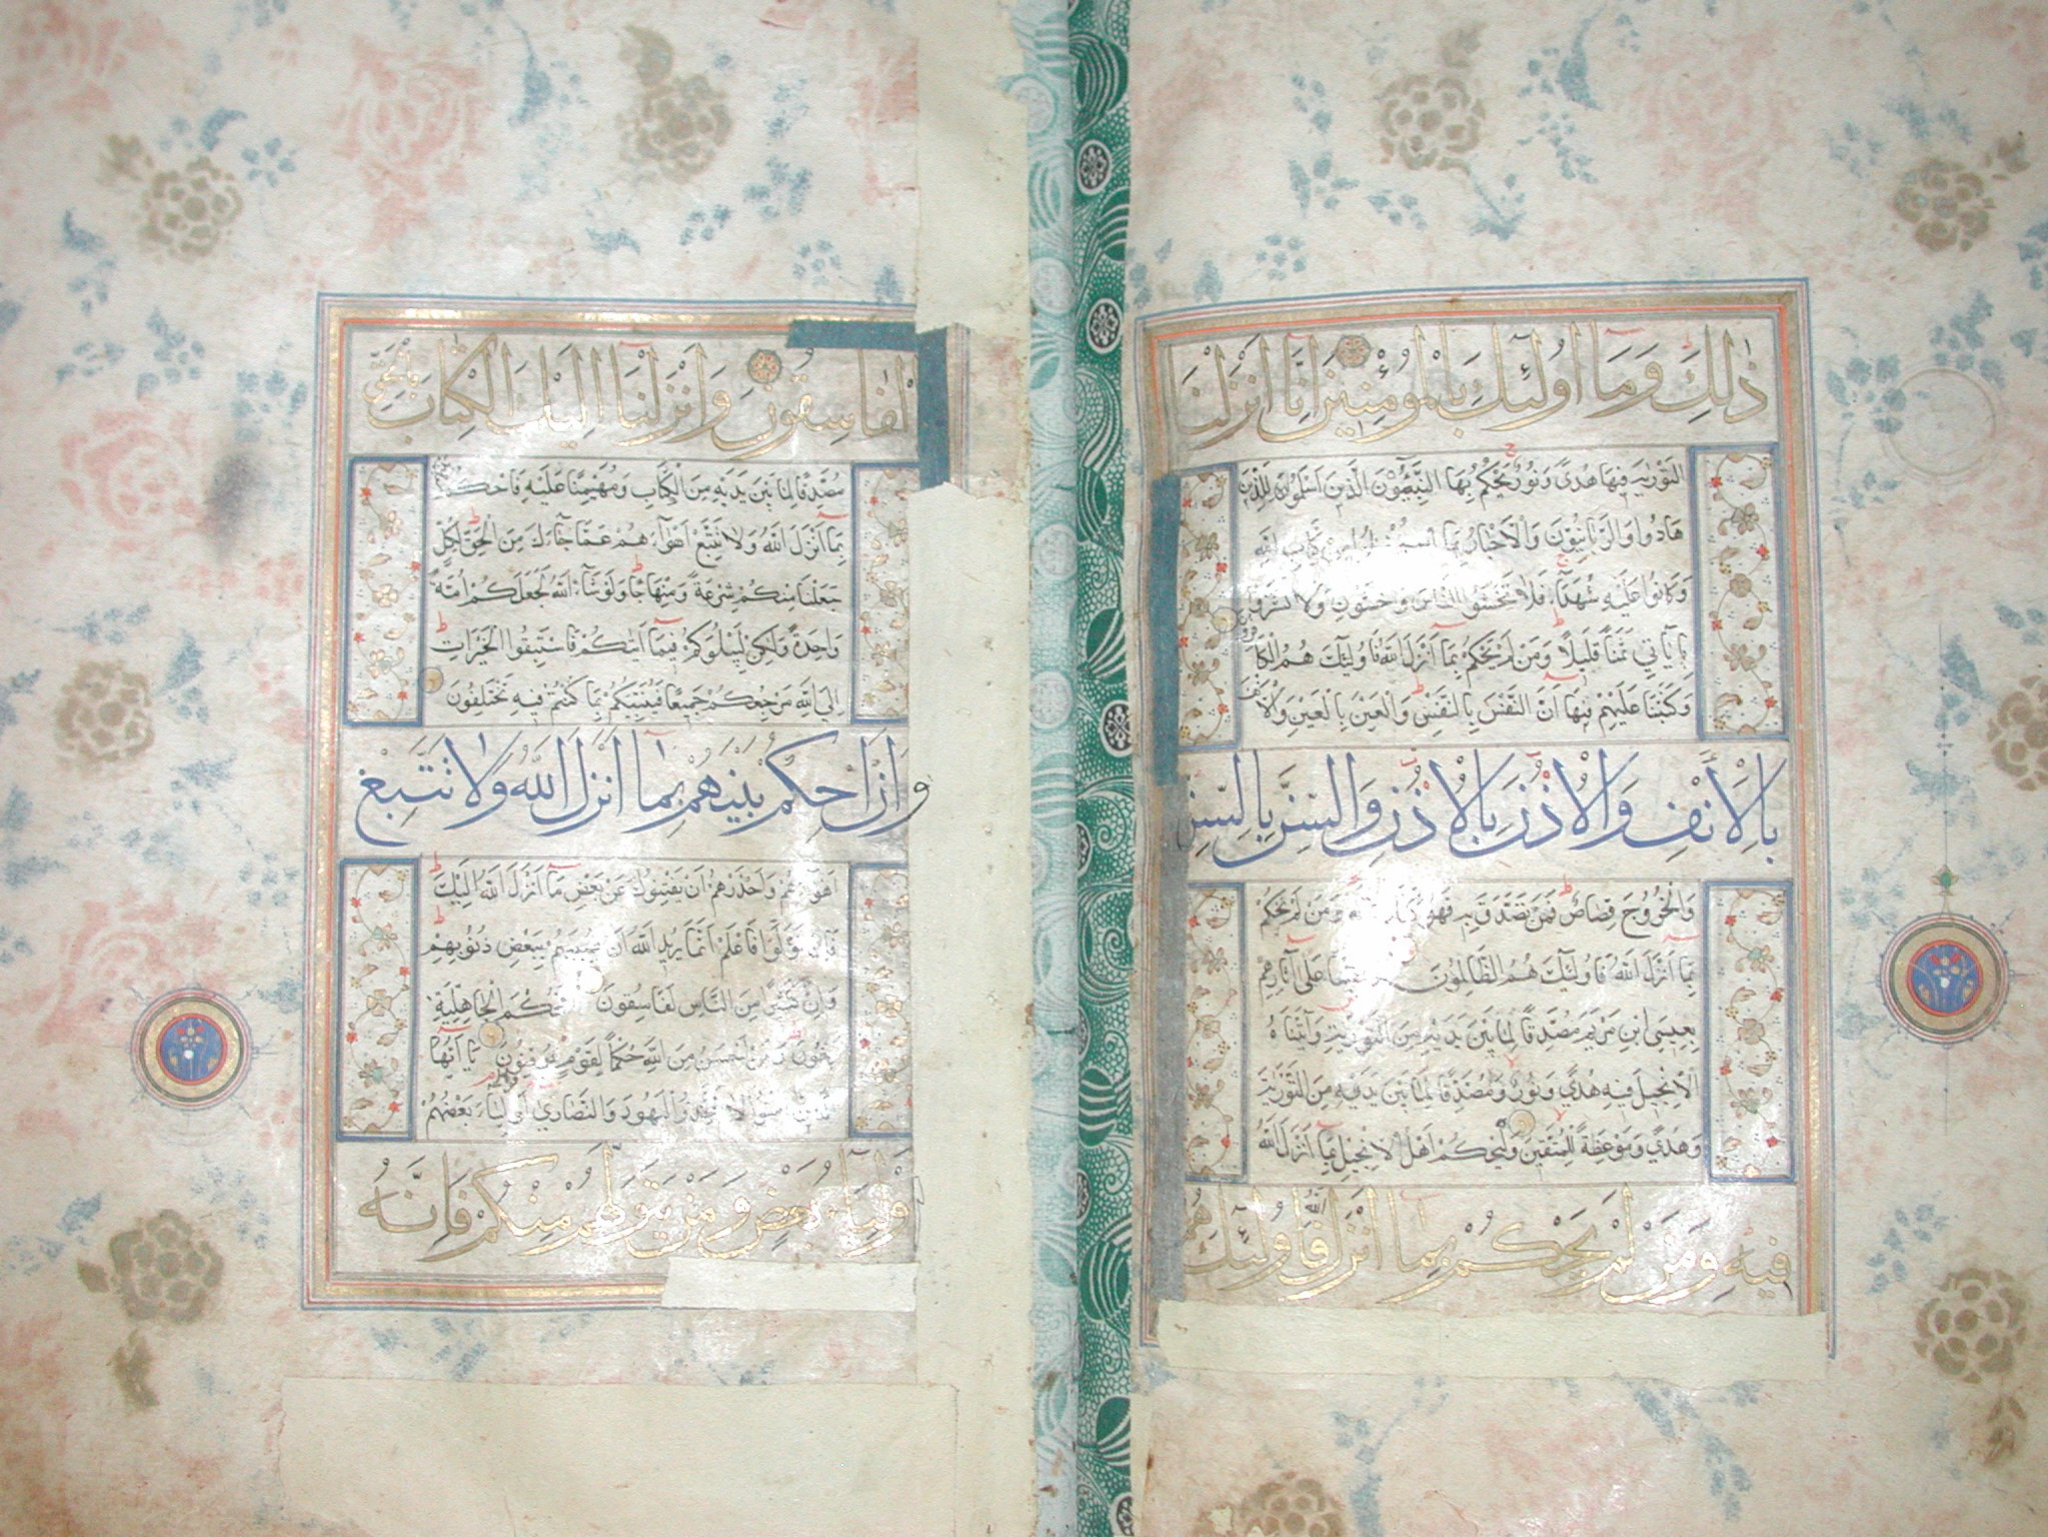 ذٰلِكَ وَمَا أُولٰئِكَ بِالْمُؤْمِنِينَ إِنَّا أَنْزَلْنَا
التَّوْرٰيةَ فِيهَا هُدًى وَنُورٌ يَحْكُمُ بِهَا النَّبِيُّونَ الَّذِينَ أَسْلَمُوا لِلَّذِينَ
هَادُوا وَالرَّبَّانِيُّونَ وَالْأَحْبَارُ بِمَا اسْتُحْفِظُوا مِنْ كِتَابِ اللَّهِ
وَكَانُوا عَلَيْهِ شُهَدَاءَ فَلَا تَخْشَوُا النَّاسَ وَاخْشَوْنِ وَلَا تَشْتَرُوا
بِآيَاتِي ثَمَنًا قَلِيلًا وَمَنْ لَمْ يَحْكُمْ بِمَا أَنْزَلَ اللَّهُ فَأُولٰئِكَ هُمُ الْكَافِرُونَ
وَكَتَبْنَا عَلَيْهِمْ فِيهَا أَنَّ النَّفْسَ بِالنَّفْسِ وَالْعَيْنَ بِالْعَيْنِ وَالْأَنْفَ
بِالْأَنْفِ وَالْأُذُنَ بِالْأُذُنِ وَالسِّنَّ بِالسِّنِّ
وَالْجُرُوحَ قِصَاصٌ فَمَنْ تَصَدَّقَ بِهِ فَهُوَ كَفَّارَةٌ لَهُ وَمَنْ لَمْ يَحْكُمْ
بِمَا أَنْزَلَ اللَّهُ فَأُولٰئِكَ هُمُ الظَّالِمُونَ وَقَفَّيْنَا عَلَى آثَارِهِمْ
بِعِيسَى ابْنِ مَرْيَمَ مُصَدِّقًا لِمَا بَيْنَ يَدَيْهِ مِنَ التَّوْرٰيةِ وَآتَيْنَاهُ
الْإِنْجِيلَ فِيهِ هُدًى وَنُورٌ وَمُصَدِّقًا لِمَا بَيْنَ يَدَيْهِ مِنَ التَّوْرٰيةِ
وَهُدًى وَمَوْعِظَةً لِلْمُتَّقِينَ وَلْيَحْكُمْ أَهْلُ الْإِنْجِيلِ بِمَا أَنْزَلَ اللَّهُ
فِيهِ وَمَنْ لَمْ يَحْكُمْ بِمَا أَنْزَلَ اللَّهُ فَأُولٰئِكَ هُمُ
الْفَاسِقُونَ وَأَنْزَلْنَا إِلَيْكَ الْكِتَابَ بِالْحَقِّ
مُصَدِّقًا لِمَا بَيْنَ يَدَيْهِ مِنَ الْكِتَابِ وَمُهَيْمِنًا عَلَيْهِ فَاحْكُمْ
بِمَا أَنْزَلَ اللَّهُ وَلَا تَتَّبِعْ أَهْوَاءَهُمْ عَمَّا جَاءَكَ مِنَ الْحَقِّ لِكُلٍّ
جَعَلْنَا مِنْكُمْ شِرْعَةً وَمِنْهَاجًا وَلَوْ شَاءَ اللَّهُ لَجَعَلَكُمْ أُمَّةً
وَاحِدَةً وَلٰكِنْ لِيَبْلُوَكُمْ فِيمَا آتٰيكُمْ فَاسْتَبِقُوا الْخَيْرَاتِ
إِلَى اللَّهِ مَرْجِعُكُمْ جَمِيعًا فَيُنَبِّئُكُمْ بِمَا كُنْتُمْ فِيهِ تَخْتَلِفُونَ
وَأَنِ احْكُمْ بَيْنَهُمْ بِمَا أَنْزَلَ اللَّهُ وَلَا تَتَّبِعْ
أَهْوَاءَهُمْ وَاحْذَرْهُمْ أَنْ يَفْتِنُوكَ عَنْ بَعْضِ مَا أَنْزَلَ اللَّهُ إِلَيْكَ
فَإِنْ تَوَلَّوْا فَاعْلَمْ أَنَّمَا يُرِيدُ اللَّهُ أَنْ يُصِيبَهُمْ بِبَعْضِ ذُنُوبِهِمْ
وَإِنَّ كَثِيرًا مِنَ النَّاسِ لَفَاسِقُونَ أَفَحُكْمَ الْجَاهِلِيَّةِ
يَبْغُونَ وَمَنْ أَحْسَنُ مِنَ اللَّهِ حُكْمًا لِقَوْمٍ يُوقِنُونَ يَا أَيُّهَا
الَّذِينَ آمَنُوا لَا تَتَّخِذُوا الْيَهُودَ وَالنَّصَارَى أَوْلِيَاءَ بَعْضُهُمْ
أَوْلِيَاءُ بَعْضٍ وَمَنْ يَتَوَلَّهُمْ مِنْكُمْ فَإِنَّهُ